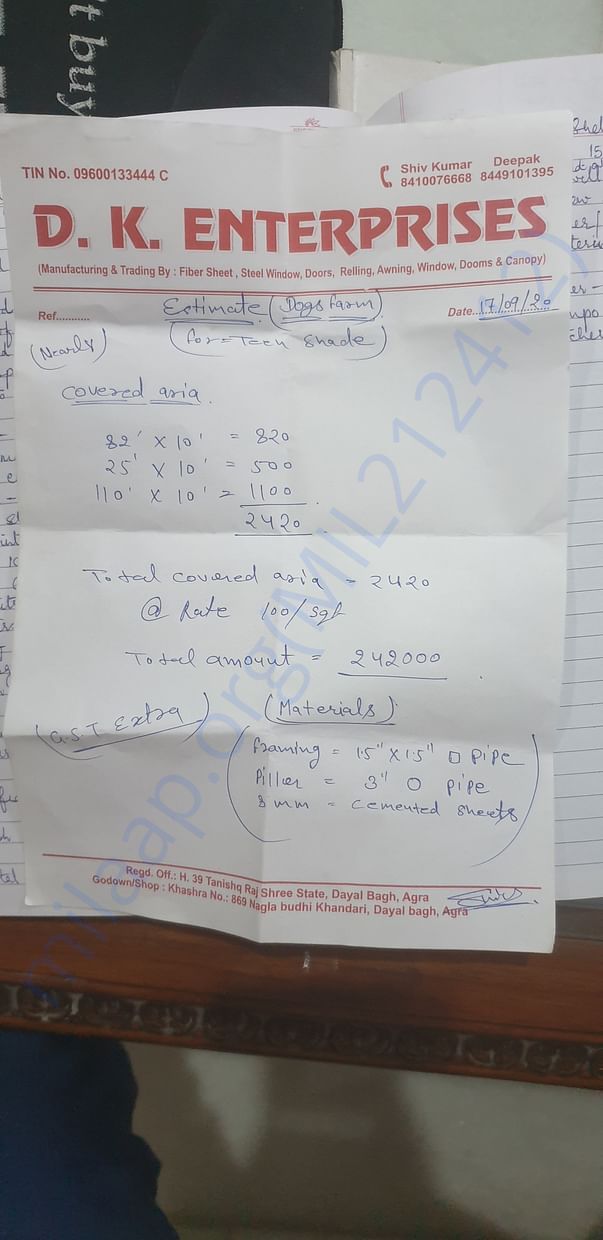 t buy
TIN No. 09600133444 C
Shiv Kumar Deepak
8410076668 8449101395
D. K. ENTERPRISES
(Manufacturing & Trading By : Fiber Sheet , Steel Window, Doors, Relling, Awning, Window, Dooms & Canopy)
Ref........... Estimate (Dogs farm) Date...17/09/20
(Nearly) (for = Teen Shade)
Covered aria.
82' X 10' = 820
25' X 10' = 500
110' X 10' = 1100
2420
Total covered aria = 2420
@ Rate 100/sqf
Total amount = 242000
(G.S.T Extra) (Materials)
framing = 1.5" X 1.5" □ pipe
Piller = 3" O pipe
8 mm = cemented sheets
Regd. Off.: H. 39 Tanishq Raj Shree State, Dayal Bagh, Agra
Godown/Shop : Khashra No.: 869 Nagla budhi Khandari, Dayal bagh, Agra
milaap.org(MIL212412)